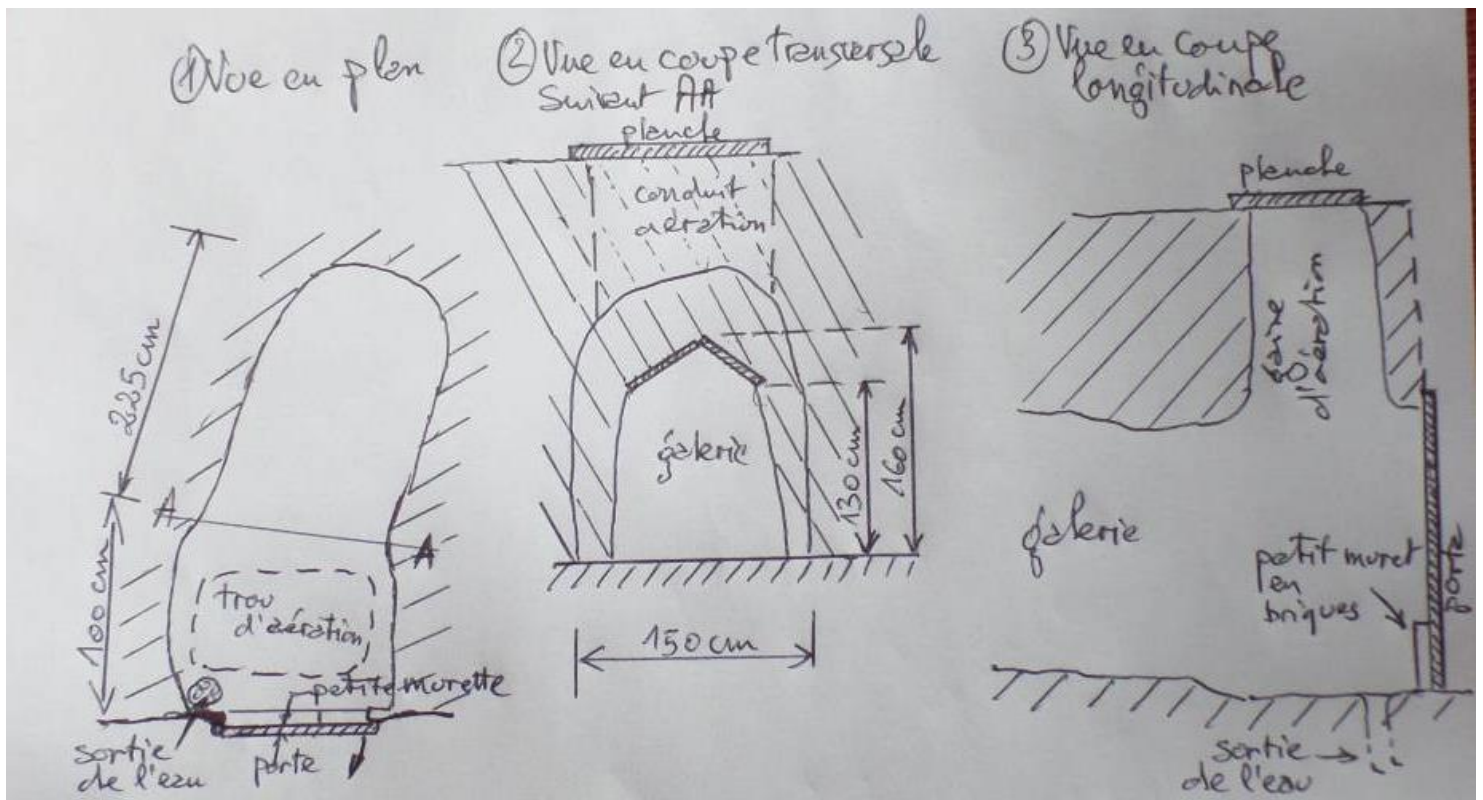 ① Vue en plan
225cm
100cm
A
A
trou
d'aération
petite murette
sortie
de l'eau
porte
② Vue en coupe transversale
Suivant AA
planche
conduit
aération
galerie
130cm
160cm
150cm
③ Vue en Coupe
longitudinale
planche
gaine
d'aération
galerie
petit muret
en
briques
porte
sortie
de l'eau